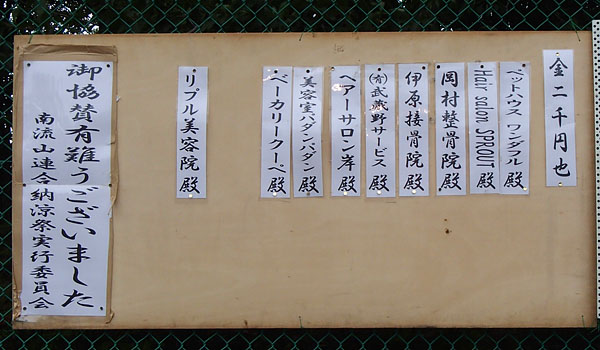 金二千円也
ペットハウス ワンダフル殿
Hair salon SPROUT殿
岡村整骨院殿
伊原接骨院殿
(有)武蔵野サービス殿
ヘアーサロン岸殿
美容室バダンバダン殿
ベーカリークーペ殿
リプル美容院殿
御協賛有難うございました
南流山連合納涼祭実行委員会